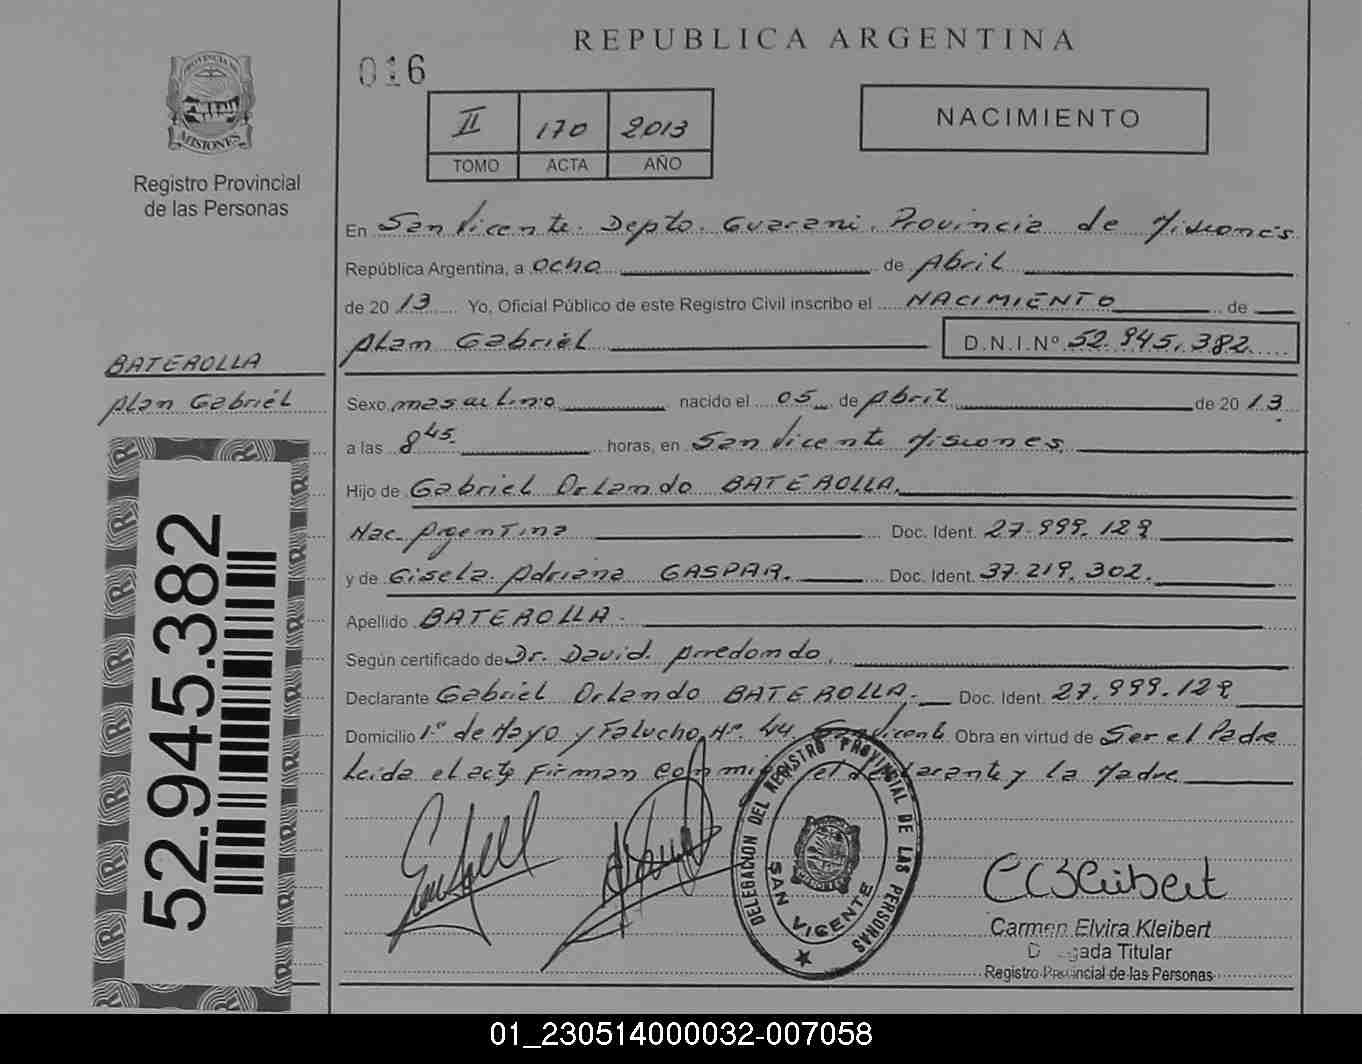 REPUBLICA ARGENTINA
016
II 170 2013
TOMO ACTA AÑO
NACIMIENTO
PROVINCIA DE
MISIONES
Registro Provincial
de las Personas
En San Vicente. Depto. Guarani. Provincia de Misiones
República Argentina, a ocho de Abril
de 2013 Yo, Oficial Público de este Registro Civil inscribo el NACIMIENTO de
Alan Gabriel D.N.I.Nº 52.945.382
BATEROLLA
Alan Gabriel
Sexo masculino nacido el 05 de Abril de 2013
a las 8 45. horas, en San Vicente Misiones,
Hijo de Gabriel Orlando BATEROLLA,
Nac. Argentina Doc. Ident. 27.999.129
y de Gisela Adriana GASPAR. Doc. Ident. 37.219.302.
Apellido BATEROLLA.
Según certificado de Dr. David Arredondo,
Declarante Gabriel Orlando BATEROLLA. Doc. Ident. 27.999.129
Domicilio 1º de Mayo y Falucho Nº 44 San Vicente Obra en virtud de Ser el Padre
Leida el acta Firman con migo el declarante y la Madre
52.945.382
DELEGACION DEL REGISTRO PROVINCIAL DE LAS PERSONAS
SAN VICENTE
Carmen Elvira Kleibert
Delegada Titular
Registro Provincial de las Personas
01_230514000032-007058